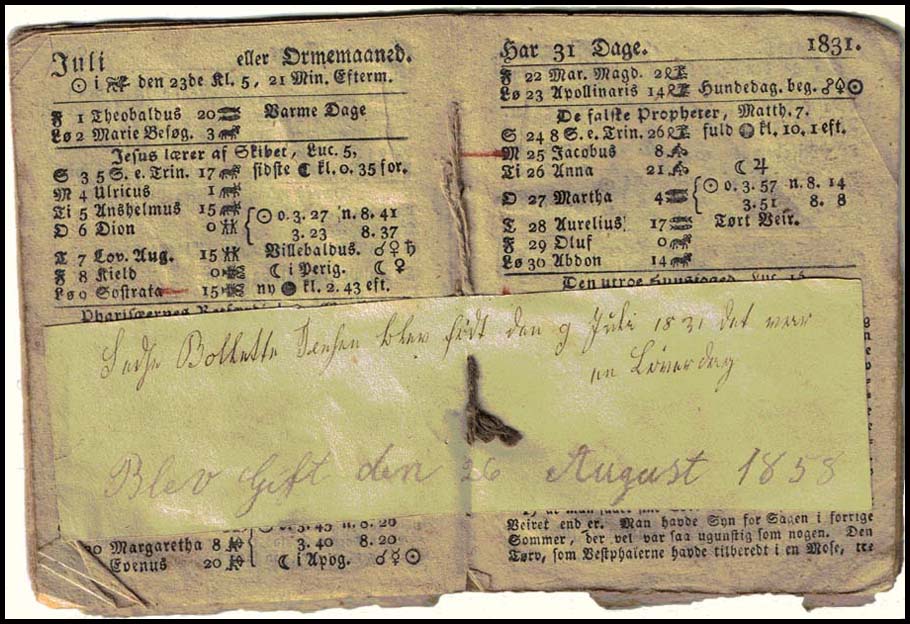 Juli eller Ormemaaned.
☉ i den 23de Kl. 5, 21 Min. Efterm.
F 1 Theobaldus 20 Varme Dage
Lø 2 Marie Besøg. 3
Jesus lærer af Skibet, Luc. 5,
S 3 5 S. e. Trin. 17 sidste ☾ kl. 0. 35 for.
M 4 Ulricus 1
Ti 5 Anshelmus 15 ☉ o. 3. 27 n. 8. 41
O 6 Dion 0 3. 23 8. 37
T 7 Lov. Aug. 15 Villebaldus. ☌ ♀ ♄
F 8 Kield 0 ☾ i Perig. ☾ ♀
Lø 9 Sostrata 15 ny kl. 2. 43 eft.
Sedse Bollette Jensen blev født den 9 Juli 1831 det var
en Löverdag
Blev Gift den 26 August 1858
o. 3. 45 n. 8. 26
20 Margaretha 8 3. 40 8. 20
Evenus 20 ☾ i Apog. ☌ ☿ ☉
Har 31 Dage. 1831.
F 22 Mar. Magd. 2
Lø 23 Apollinaris 14 Hundedag. beg. ☍ ♀ ☉
De falske Propheter, Matth. 7.
S 24 8 S. e. Trin. 26 fuld kl. 10. 1 eft.
M 25 Jacobus 8
Ti 26 Anna 21 ☾ ♃
O 27 Martha 4 ☉ o. 3. 57 n. 8. 14
3. 51 8. 8
T 28 Aurelius 17 Tørt Veir.
F 29 Oluf 0
Lø 30 Abdon 14
Den utroe Huusfoged, Luc. 16
Veiret end er. Man havde Syn for Sagen i forrige
Sommer, der vel var saa ugunstig som nogen. Den
Tørv, som Vestphalerne havde tilberedt i en Mose, tre